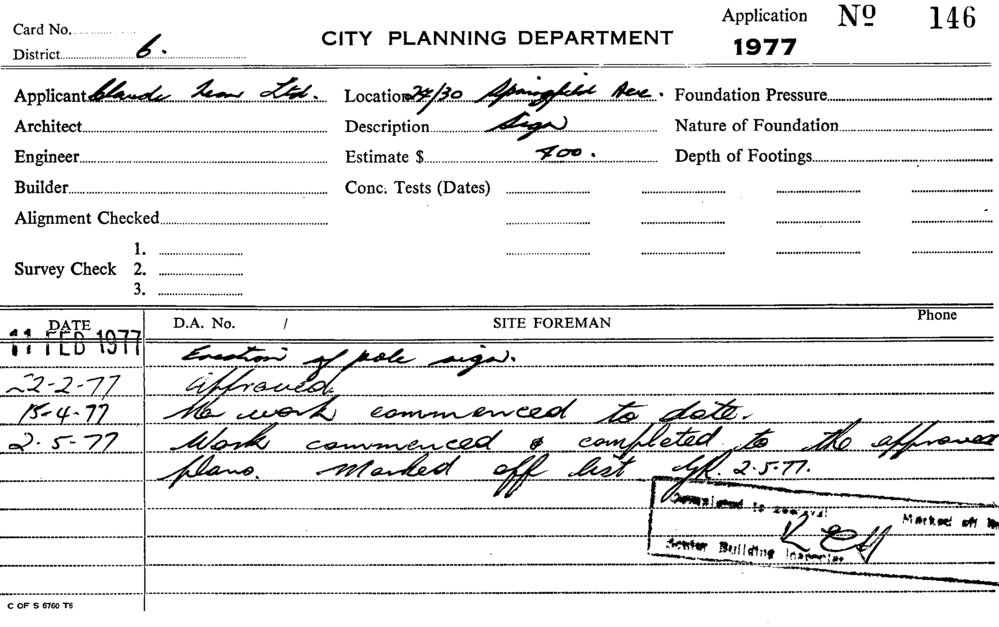 Card No.
District 6.
CITY PLANNING DEPARTMENT
Application No 146
1977
Applicant Claude Neon Ltd. Location 24/30 Springfield Ave. Foundation Pressure
Architect Description Sign Nature of Foundation
Engineer Estimate $ 400. Depth of Footings
Builder Conc. Tests (Dates)
Alignment Checked
1.
Survey Check 2.
3.
DATE D.A. No. / SITE FOREMAN Phone
11 FEB 1977 Erection of pole sign.
22-2-77 Approved.
15-4-77 No work commenced to date.
2-5-77 Work commenced & completed to the approved
plans. Marked off list 2-5-77.
Completed to approval Marked off
Senior Building Inspector
C OF S 6760 T6